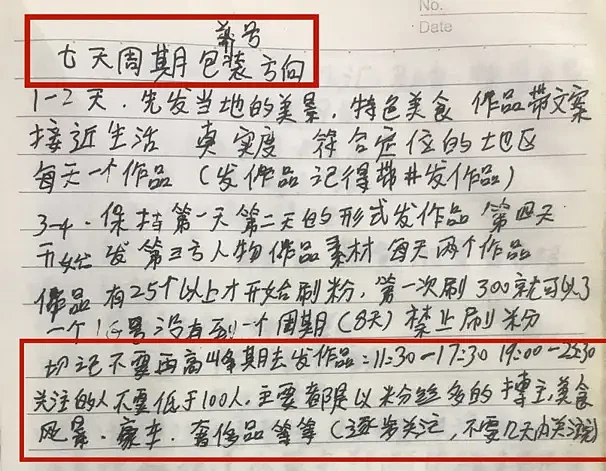 No.
Date
养号
七天周期包装方向
1-2天.先发当地的美景,特色美食 作品带文案
接近生活 真实度 符合定位的地区
每天一个作品(发作品记得带井发作品)
3-4.保持第一天第二天的形式发作品 第四天
开始 发第三方人物作品素材 每天两个作品
作品有25个以上才开始刷粉,第一次刷300就可以了
一个 号没有到一个周期(8天)禁止刷粉
切记不要再高峰期去发作品:11:30-17:30 19:00-23:30
关注的人不要低于100人.主要都是以粉丝多的博主,美食
风景.豪车.奢侈品等等(逐步关注,不要几天内关注)